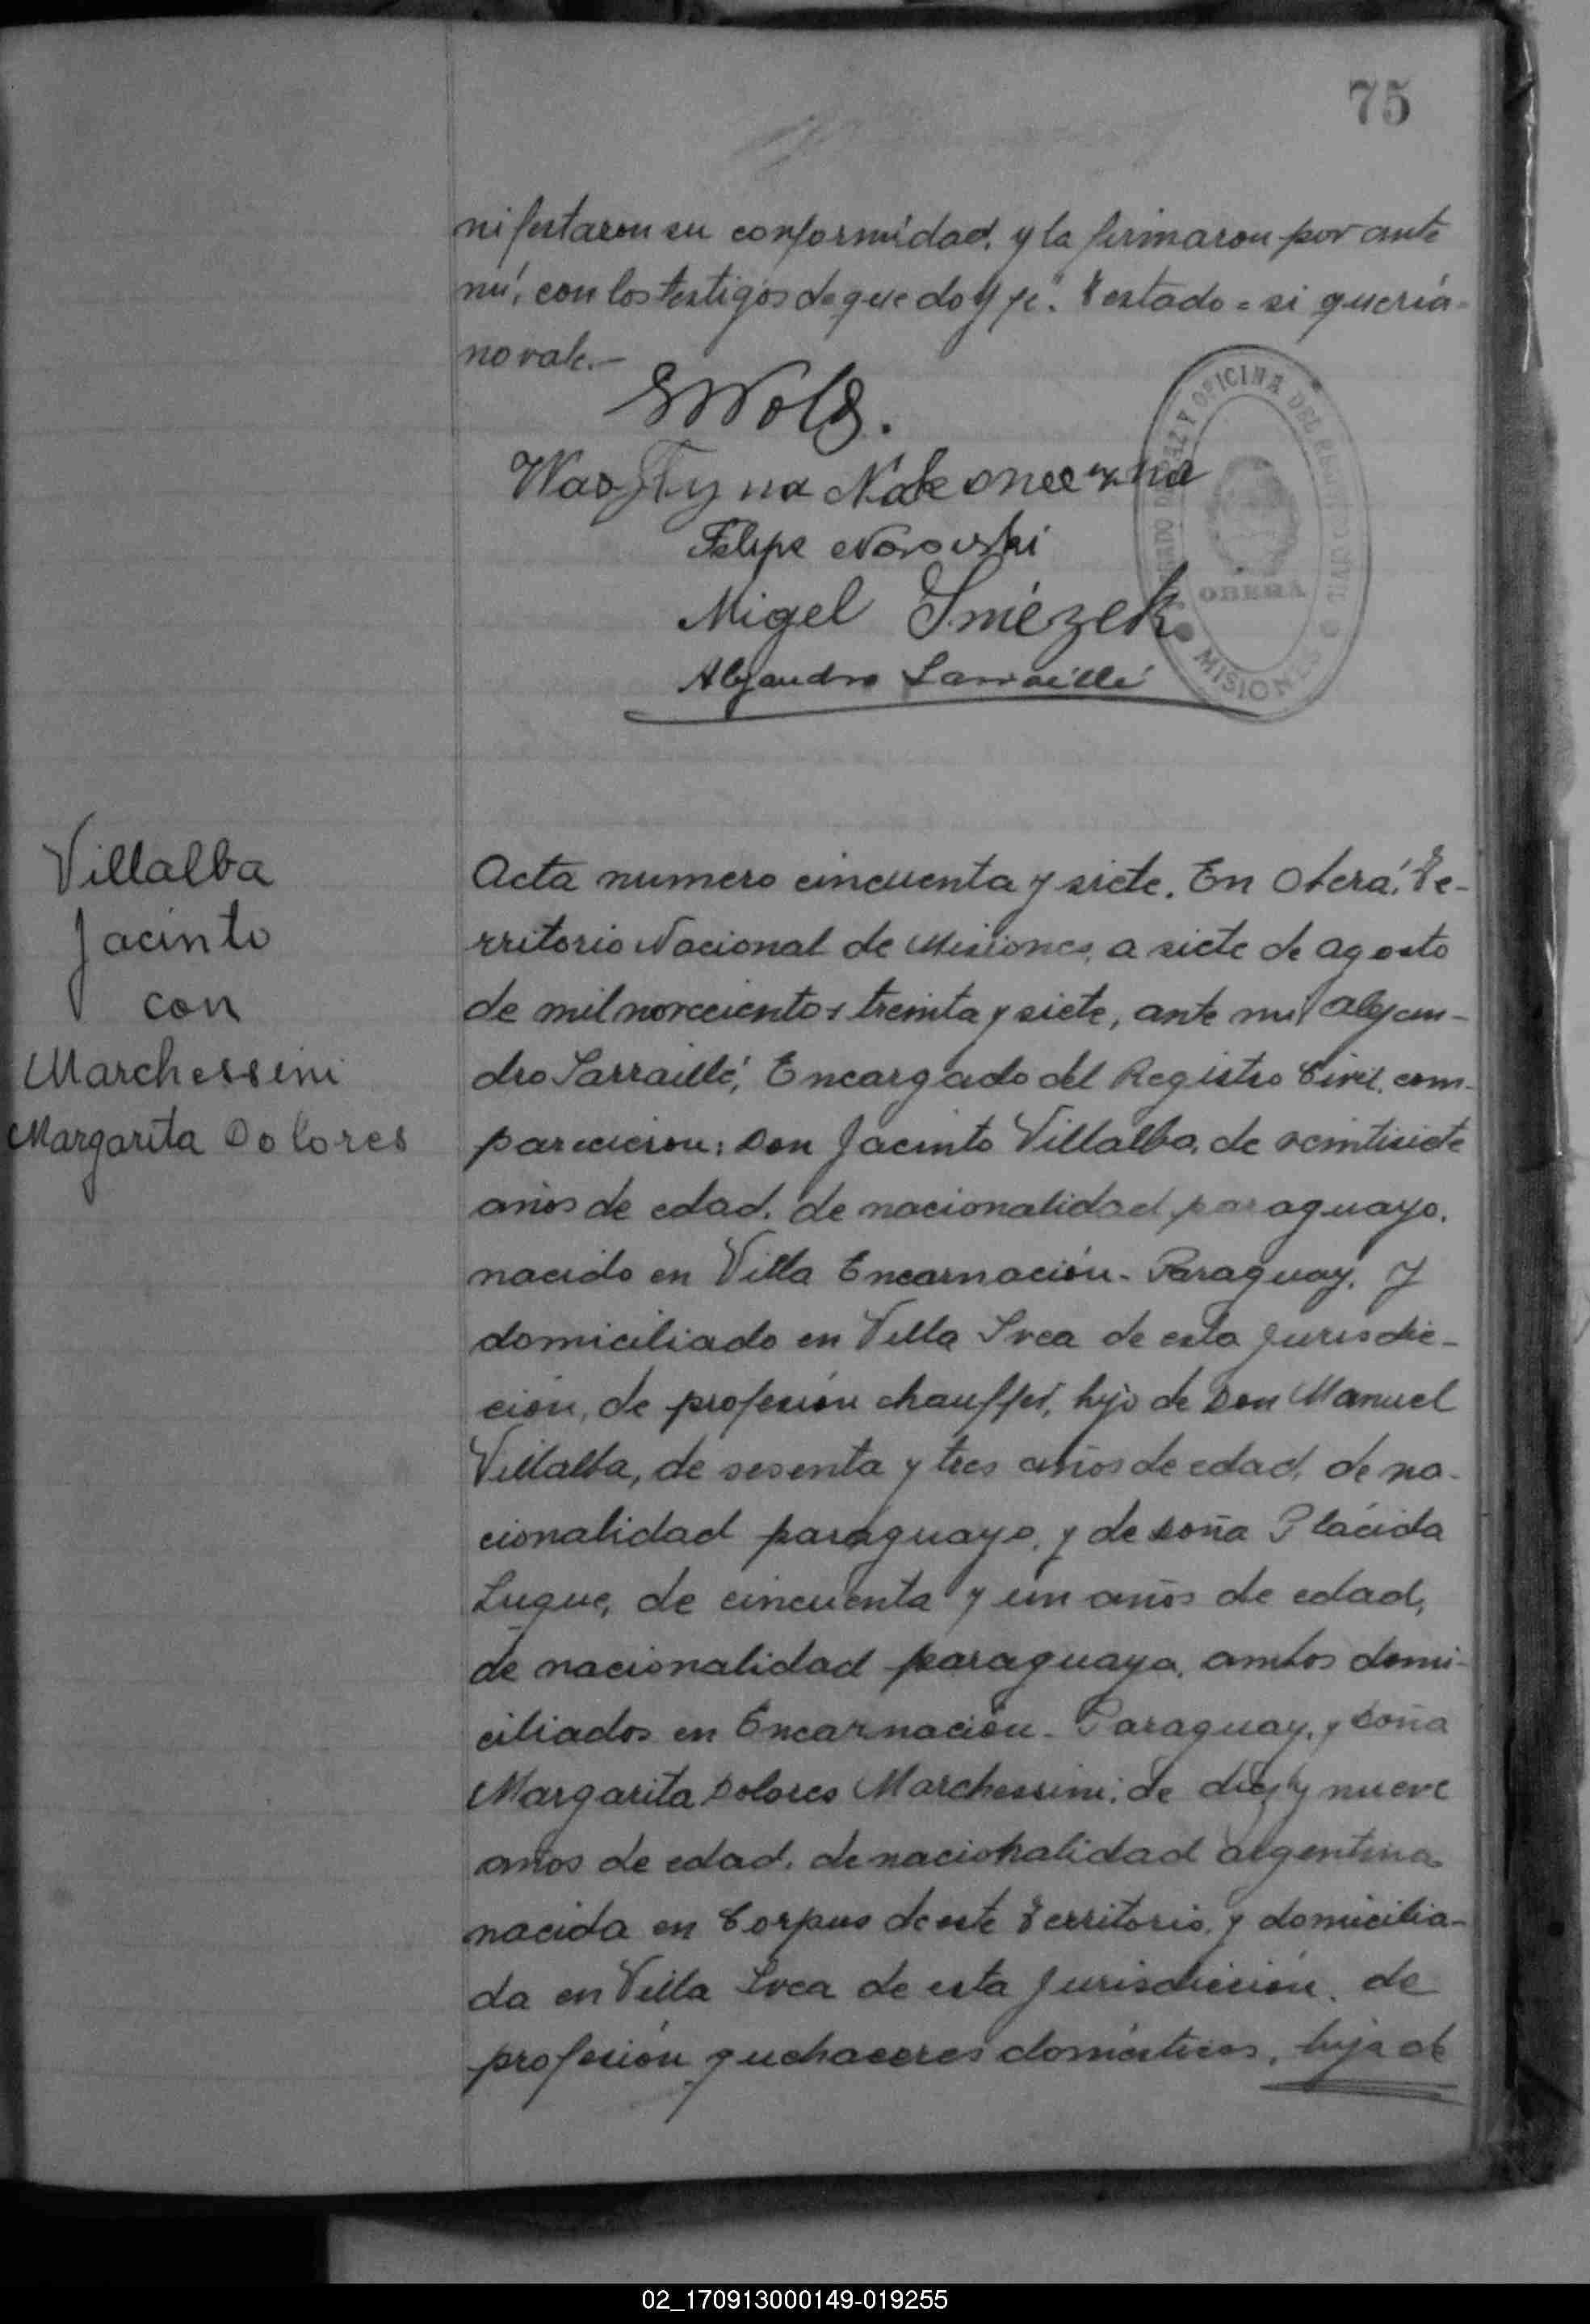 75
nifestaron su conformidad, y la firmaron por ante
mí, con los testigos de que doy fe". Testado = si quería =
no vale.—
EWolf.
Felipe Norowski
Migel Smézek
Alejandro Larraillé
OFICINA DEL REGISTRO CIVIL
OBERÁ
MISIONES
Villalba
Jacinto
con
Marchessini
Margarita Dolores
Acta numero cincuenta y siete. En Oberá, Te-
rritorio Nacional de Misiones, a siete de agosto
de mil novecientos treinta y siete, ante mí Alejan-
dro Larraillé, Encargado del Registro Civil, com-
parecieron: Don Jacinto Villalba, de veintisiete
años de edad, de nacionalidad paraguayo,
nacido en Villa Encarnación - Paraguay, y
domiciliado en Villa Svea de esta jurisdic-
ción, de profesión chauffer, hijo de Don Manuel
Villalba, de sesenta y tres años de edad, de na-
cionalidad paraguayo, y de doña Plácida
Luque, de cincuenta y un años de edad,
de nacionalidad paraguaya, ambos domi-
ciliados en Encarnación - Paraguay, y doña
Margarita Dolores Marchessini, de diez y nueve
años de edad, de nacionalidad argentina
nacida en Corpus de este Territorio, y domicilia-
da en Villa Svea de esta jurisdicción, de
profesión quehaceres domésticos, hija de
02_170913000149-019255